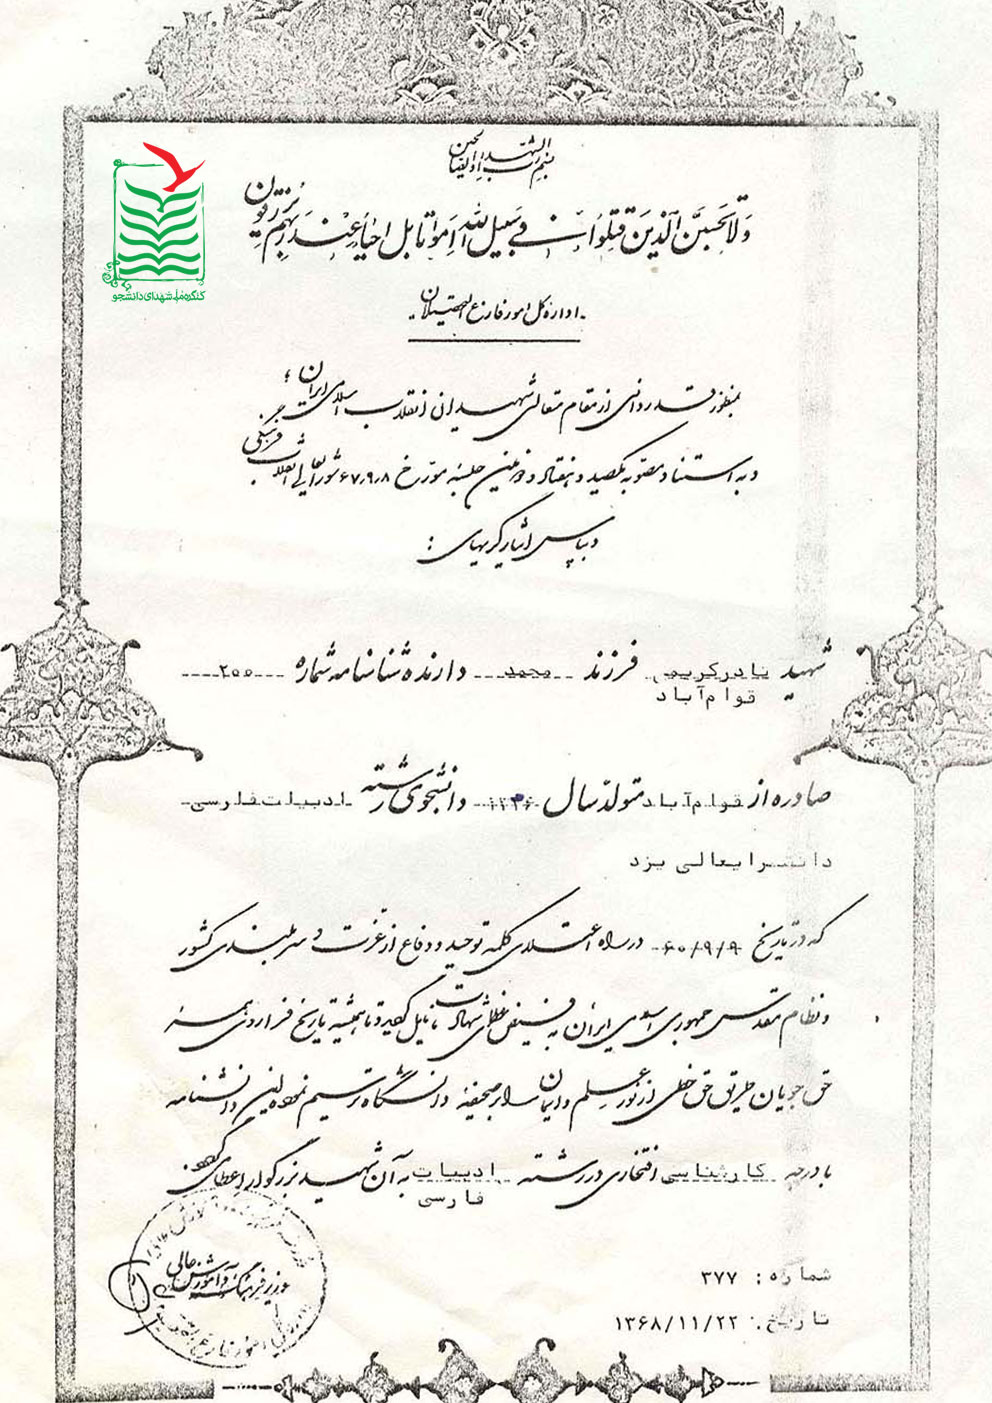 بسم رب الشهداء و الصالحین
وَلا تَحسَبَنَّ الَّذینَ قُتِلُوا فی سَبیلِ اللهِ اَمواتاً بَل اَحیاءٌ عِندَ رَبِّهِم یُرزَقُون
کنگره ملی شهدای دانشجو
- اداره کل امور فارغ التحصیلان -
بمنظور قدردانی از مقام متعالی شهیدان انقلاب اسلامی ایران ؛
و به استناد مصوبه یکصد و هفتاد و نهمین جلسه مورخ ۶۷/۹/۸ شورایعالی انقلاب فرهنگی
و بپاس ایثارگریهای :
شهید نادر کریمی قوام‌آباد فرزند محمد دارنده شناسنامه شماره ۲۰۰
صادره از قوام‌آباد متولد سال ۱۳۳۶ دانشجوی رشته ادبیات فارسی
دانشسرایعالی یزد
که در تاریخ ۶۰/۹/۹ در راه اعتلای کلمه توحید و دفاع از عزت و سربلندی کشور
و نظام مقدس جمهوری اسلامی ایران به فیض عظمای شهادت نایل گردید و تا همیشه تاریخ فرا روی همه
حق جویان طریق حق خطی از نور علم و ایمان بر صحیفه دانشگاه ترسیم نمود این دانشنامه
با درجه کارشناسی افتخاری در رشته ادبیات فارسی به آن شهید بزرگوار اعطا می گردد.
وزیر فرهنگ و آموزش عالی
شماره: ۳۷۷
تاریخ: ۱۳۶۸/۱۱/۲۲